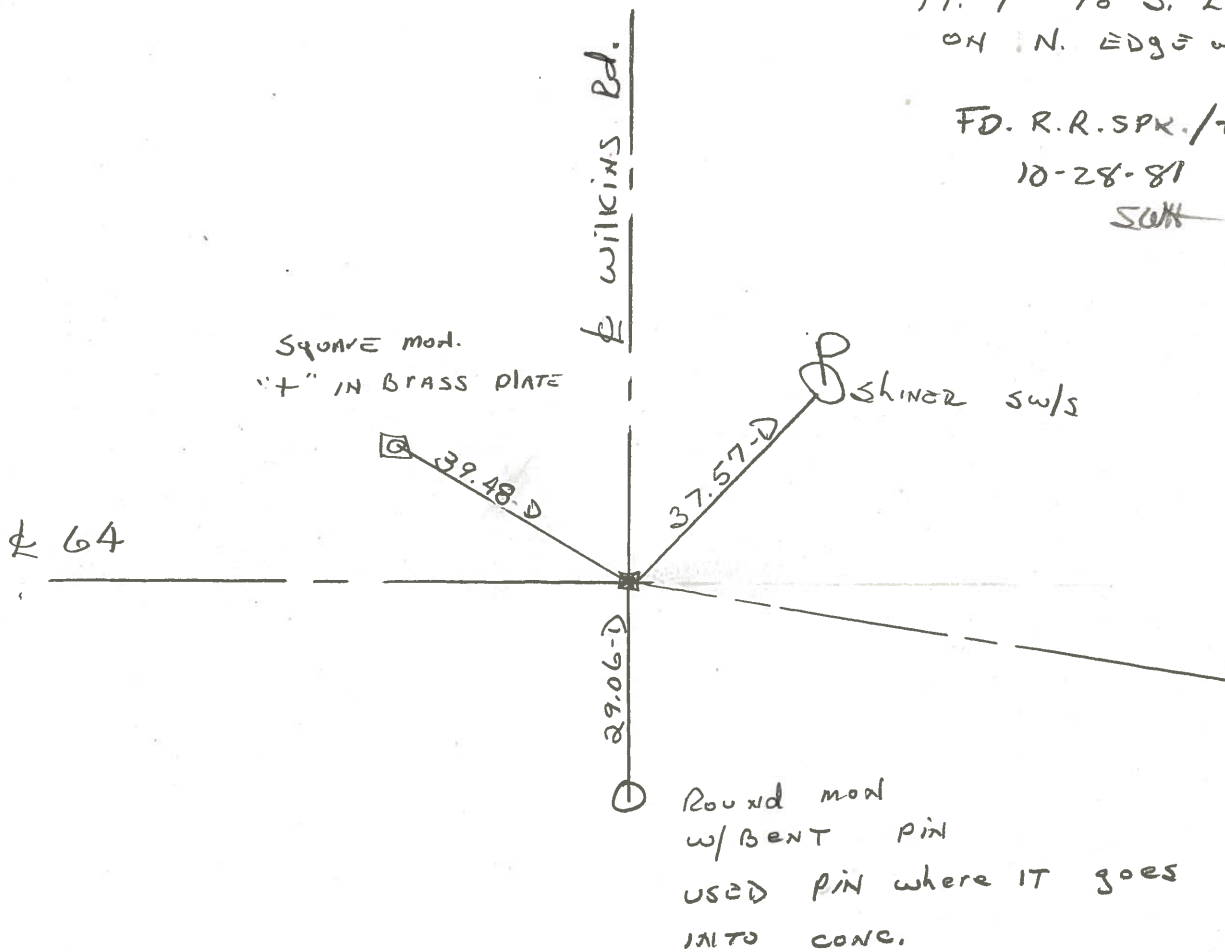 ON N. EDGE
FD. R.R. SPK./
10-28-81
℄ Wilkins Rd.
SQUARE MON.
"+" IN BRASS PLATE
SHINER SW/S
39.48-D
37.57-D
℄ 64
29.06-D
ROUND MON
W/BENT PIN
USED PIN where IT goes
INTO CONC.